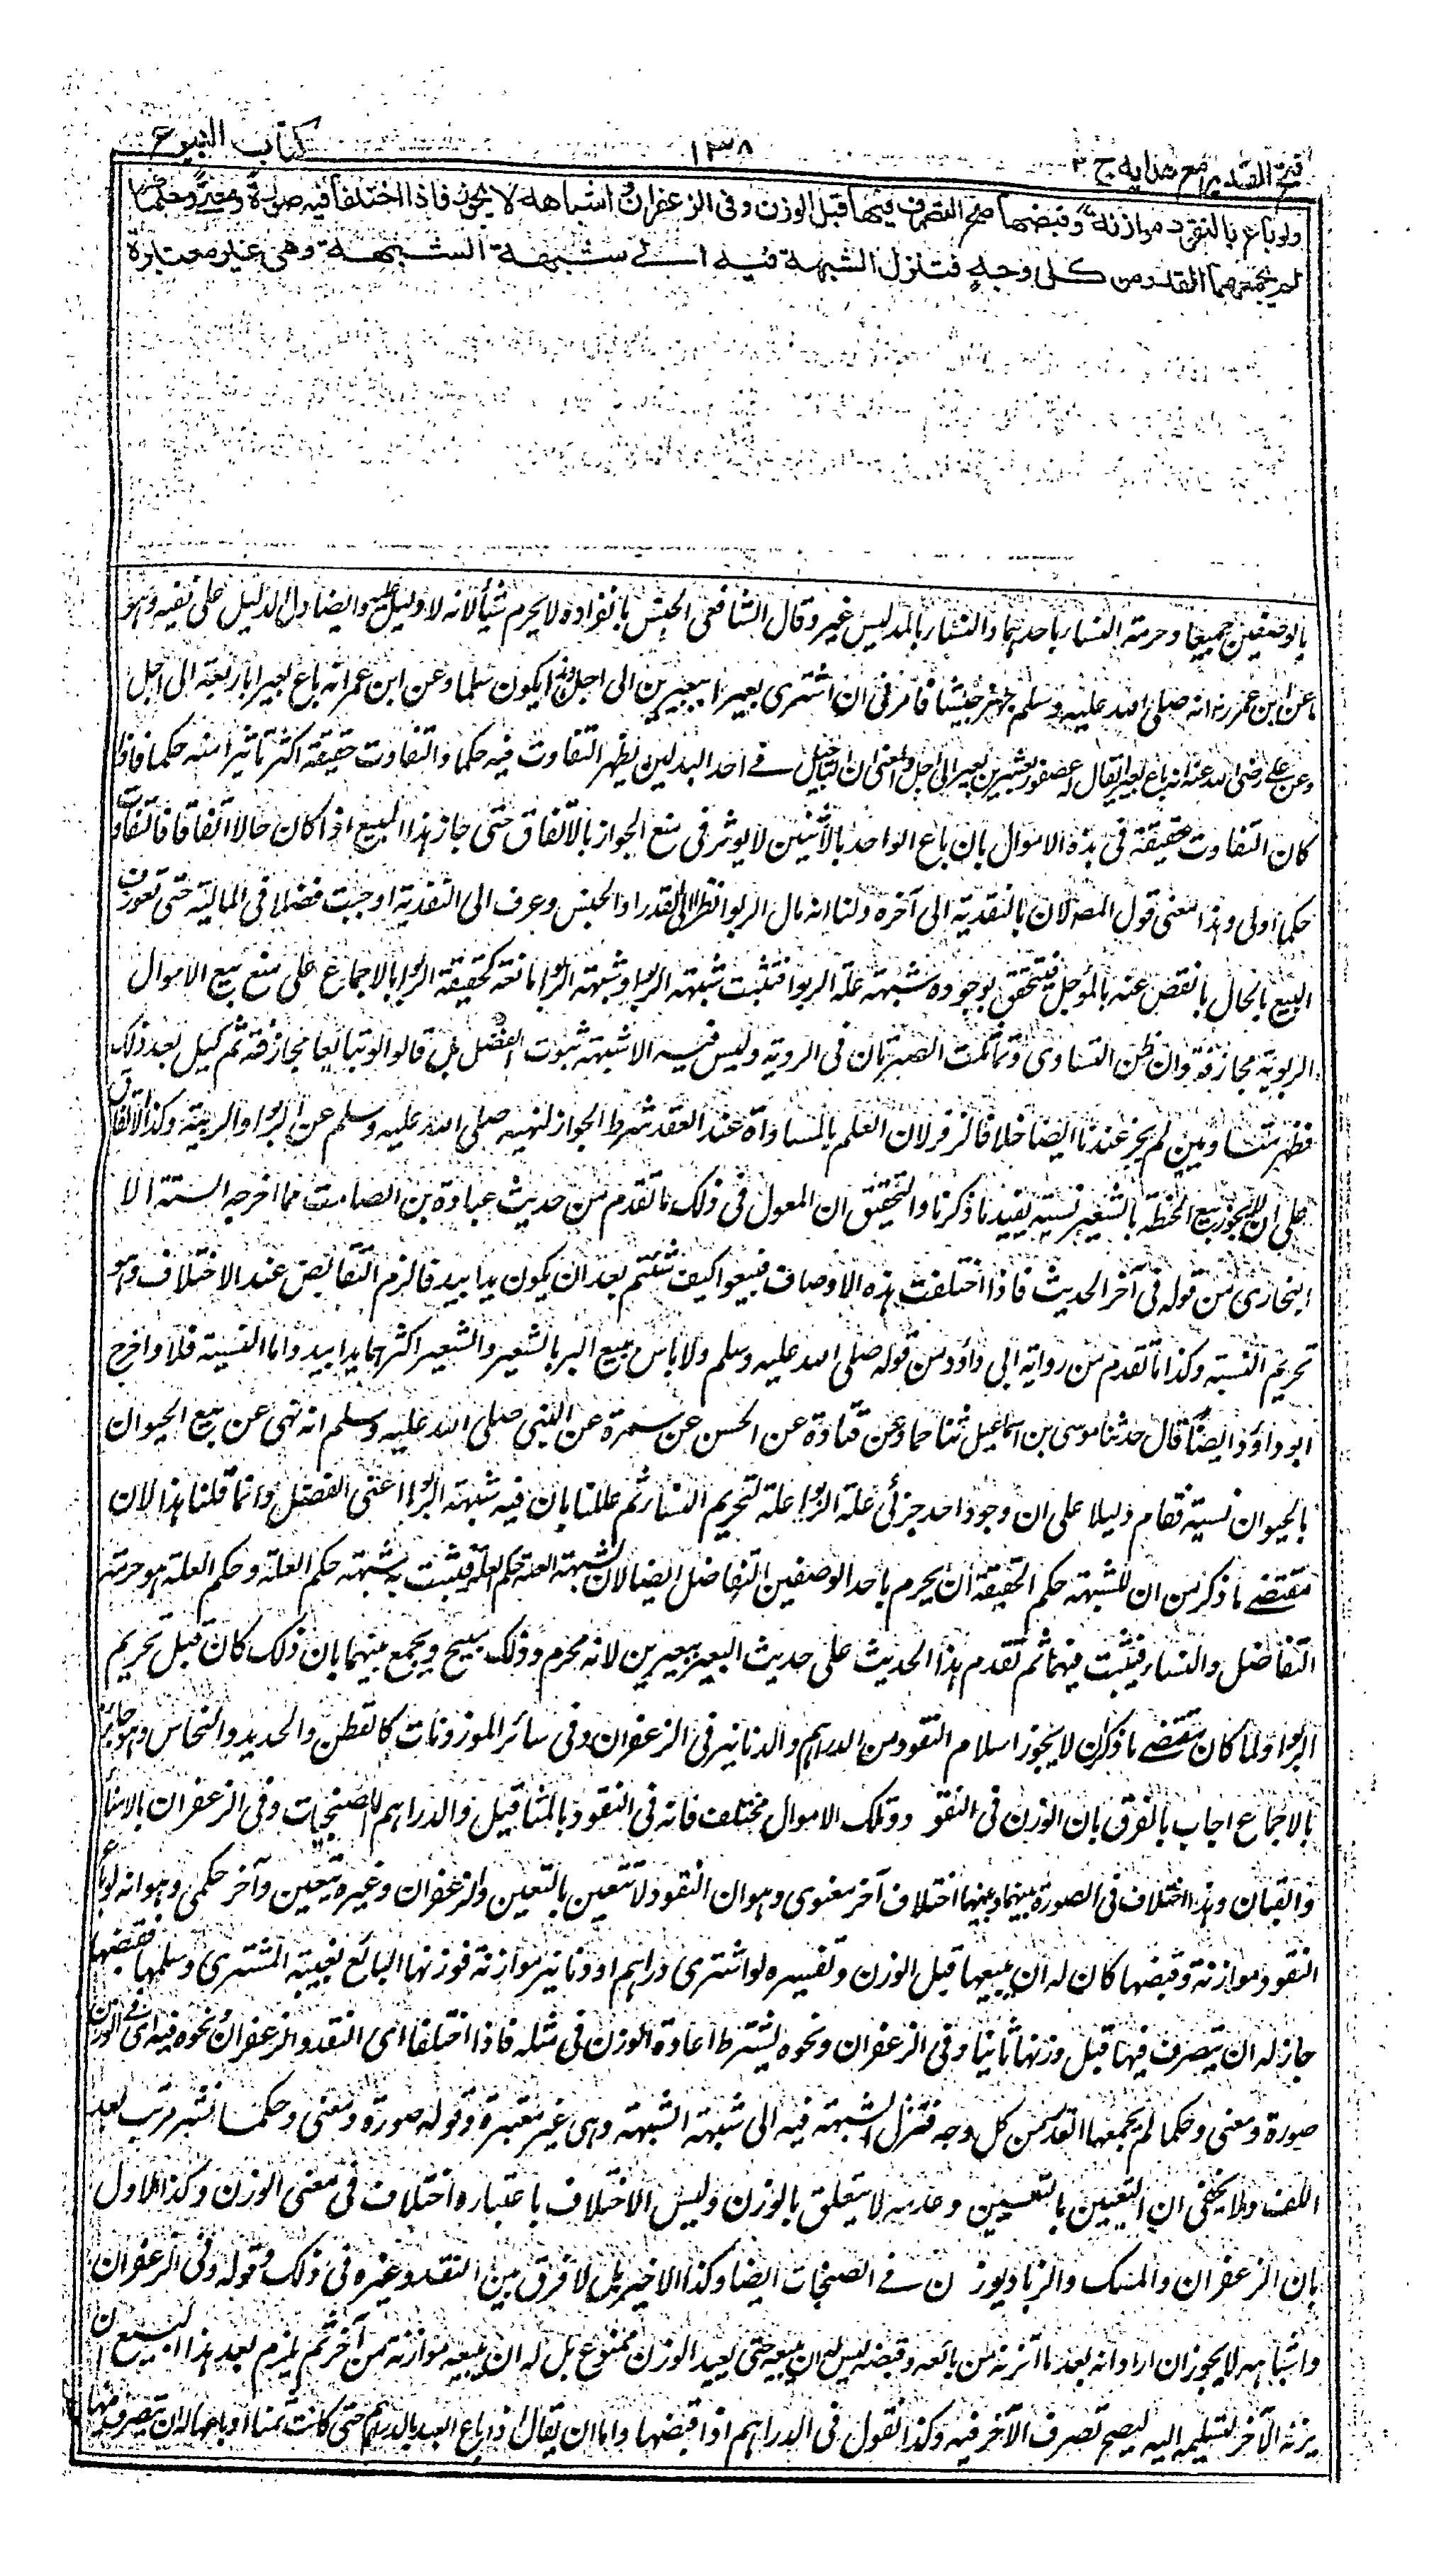 فتح القدير مع هدايه ج ٣
١٣٨
كتاب البيوع
ولو باع بالنقود موازنة وقبضها صح التصرف فيها قبل الوزن وفى الزعفران واشباهه لا يجوز فاذا اختلفا فيه صورة ومعنى وحكما
لم يجمعهما القدر من كل وجه فتنزل الشبهة فيه الى شبهة الشبهة وهى غير معتبرة
بالوصفين جميعا وحرمة النسار باحدهما والنسار بالمد ليس غير وقال الشافعى الجنس بانفراده لا يحرم شيأ لانه لا دليل عليه وايضا دل الدليل على نفيه وهو
ما عن ابن عمر رض انه صلى الله عليه وسلم جهز جيشا فامرنى ان اشترى بعيرا ببعيرين الى اجل ايكون سلما وعن ابن عمر انه باع بعيرا باربعة الى اجل
وعن على رضى الله عنه انه باع بعيرا يقال له عصفور بعشرين بعيرا الى اجل والمعنى ان التاجيل فے احد البدلين يظهر التفاوت فيه حكما والتفاوت حقيقة اكثر تاثيرا منه حكما فاذا
كان التفاوت حقيقة فى هذه الاموال بان باع الواحد بالاثنين لا يوثر فى منع الجواز بالاتفاق حتى جاز هذا المبيع اذا كان حالا اتفاقا فالتفاوت
حكما اولى وهذا معنى قول المصر لان بالنقدية الى آخره ولنا انه مال الربوا نظرا الى القدر او الجنس وعرف الى النقدية اوجبت فضلا فى المالية حتى تعورف
البيع بالحال بانقص عنه بالمؤجل فيتحقق بوجوده شبهة علة الربوا فتثبت شبهة الربوا وشبهة الربوا مانعة كحقيقة الربوا بالاجماع على منع بيع الاموال
الربوية مجازفة وان ظن التساوى وتماثلت الصبرتان فى الروية وليس فيه الا شبهة ثبوت الفضل بل قالوا لو تبايعا مجازفة ثم كيل بعد ذلك
فظهر متساويين لم يجز عندنا ايضا خلافا لزفر لان العلم بالمساواة عند العقد شرط الجواز لنهيه صلى الله عليه وسلم عن الربوا والريبة وكذا الاتفاق
على ان لا يجوز بيع الحنطة بالشعير نسية يفيد ما ذكرنا والتحقيق ان المعول فى ذلك ما تقدم من حديث عبادة بن الصامت مما اخرجه الستة الا
البخارى من قوله فى آخر الحديث فاذا اختلفت هذه الاوصاف فبيعوا كيف شئتم بعد ان يكون يدا بيد فالزم التقابض عند الاختلاف وهو
تحريم النسية وكذا ما تقدم من رواية ابى داؤد من قوله صلى الله عليه وسلم ولا باس ببيع البر بالشعير والشعير اكثرهما يدا بيد واما النسية فلا واخرج
ابو داؤد ايضا قال حدثنا موسى بن اسماعيل ثنا حماد عن قتادة عن الحسن عن سمرة عن النبى صلى الله عليه وسلم انه نهى عن بيع الحيوان
بالحيوان نسية فقام دليلا على ان وجود احد جزئى علة الربوا علة لتحريم النسار ثم عللنا بان فيه شبهة الربوا اعنى الفضل وانما قلنا هذا لان
مقتضے ما ذكر من ان للشبهة حكم الحقيقة ان يحرم باحد الوصفين التفاضل ايضا لان لشبهة العلة حكم العلة فيثبت به شبهة حكم العلة وحكم العلة هو حرمة
التفاضل والنسار فيثبت فيهما ثم تقدم هذا الحديث على حديث البعير ببعيرين لانه محرم وذلك مبيح ويجمع بينهما بان ذلك كان قبل تحريم
الربوا ولما كان مقتضے ما ذكر ان لا يجوز اسلام النقود من الدراهم والدنانير فى الزعفران وفى سائر الموزونات كالقطن والحديد والنحاس وهو جائز
بالاجماع اجاب بالفرق بان الوزن فى النقود وتلك الاموال مختلف فانه فى النقود بالمثاقيل والدراهم الصنجات وفى الزعفران بالامناء
والقبان وهذا اختلاف فى الصورة بينهما وبينهما اختلاف آخر معنوى وهو ان النقود لا تتعين بالتعين والزعفران وغيره يتعين وآخر حكمى وهو انه لو باع
النقود موازنة وقبضها كان له ان يبيعها قبل الوزن وتفسيره لو اشترى دراهم او دنانير موازنة فوزنها البائع بغيبة المشترى وسلمها فقبضها
جاز له ان يتصرف فيها قبل وزنها ثانيا وفى الزعفران ونحوه يشترط اعادة الوزن فى مثله فاذا اختلفا اى النقد والزعفران ونحوه فيه اى فے الوزن
صورة ومعنى وحكما لم يجمعهما القدر من كل وجه فتنزل الشبهة فيه الى شبهة الشبهة وهى غير معتبرة وقوله صورة ومعنى وحكما نشر مرتب بعد
اللف ولا يخفى ان التعيين بالتعيين وعدمه لا يتعلق بالوزن وليس الاختلاف باعتباره اختلاف فى معنى الوزن وكذا الاول
بان الزعفران والمسك والزباد يوزن فے الصنجات ايضا وكذا الاخير بل لا فرق بين النقد وغيره فى ذلك وقوله وفى الزعفران
واشباهه لا يجوز ان اراد انه بعد ما اتزنه من بائعه وقبضه ليس له ان يبيعه حتى يعيد الوزن ممنوع بل له ان يبيعه موازنة من آخر ثم يلزم بعد هذا البيع ان
يزنه الآخر لتسليمه اليه ليصح تصرف الآخر فيه وكذا نقول فى الدراهم اذا قبضها واما ان يقال اذا باع العبد بالدراهم حتى كانت ثمنا او باعها له ان يتصرف فيها